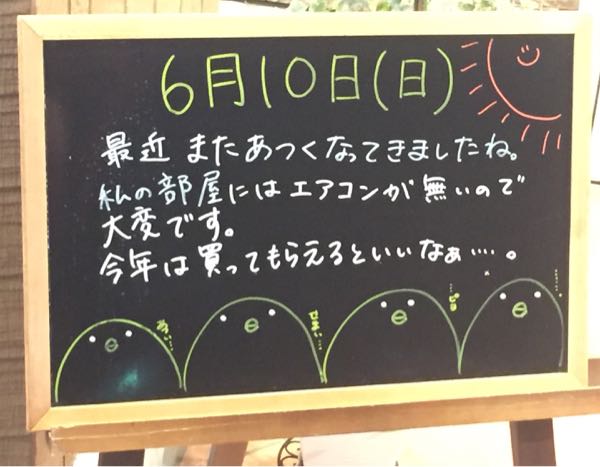 6月10日(日)
最近 またあつくなってきましたね。
私の部屋にはエアコンが無いので
大変です。
今年は買ってもらえるといいなぁ……。
あつい…
せまい…
…ピヨ